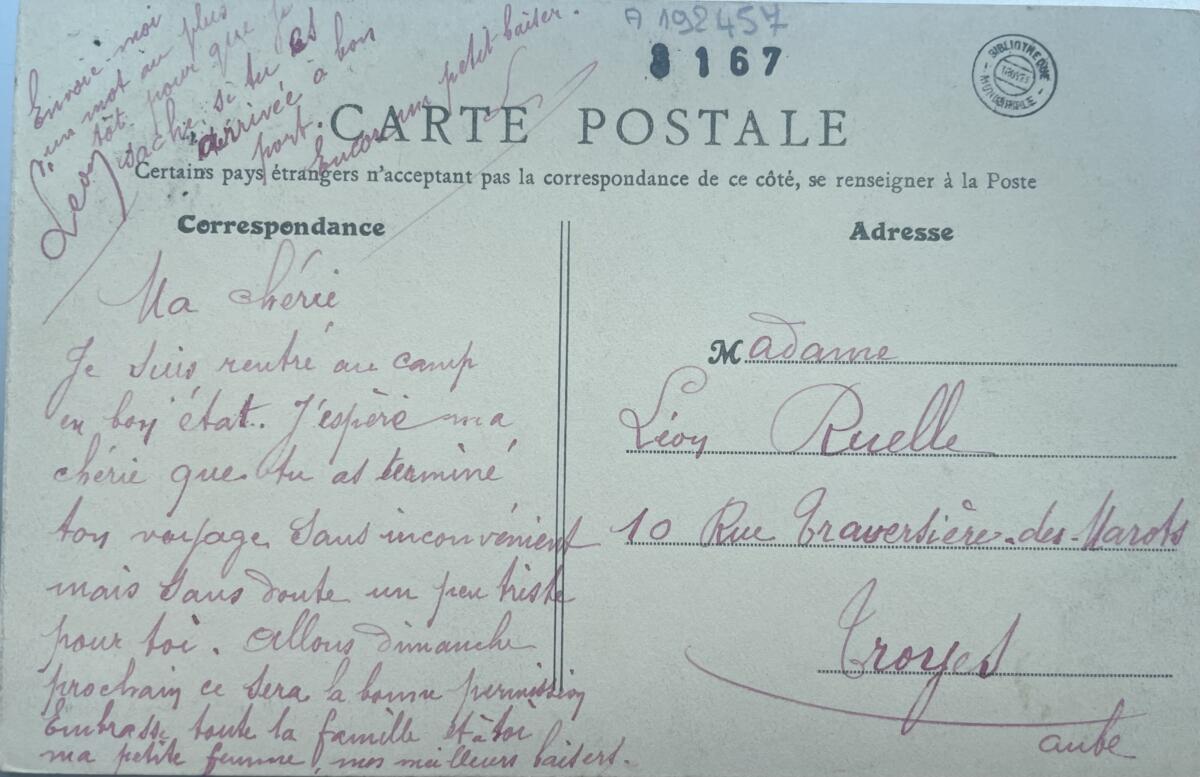 Envoie-moi
un mot au plus
tôt pour que je
sache si tu es
arrivée à bon
port.
Encor un petit baiser.
Léon
A 192457
3167
BIBLIOTHEQUE
TROYES
MUNICIPALE
CARTE POSTALE
Certains pays étrangers n'acceptant pas la correspondance de ce côté, se renseigner à la Poste
Correspondance
Ma chérie
Je suis rentré au camp
en bon état. J'espère ma
chérie que tu as terminé
ton voyage sans inconvénient
mais sans doute un peu triste
pour toi. Allons dimanche
prochain ce sera la bonne permission
Embrasse toute la famille et à toi
ma petite femme, mes meilleurs baisers.
Adresse
Madame
Léon Ruelle
10 Rue Traversière-des-Marots
Troyes
aube